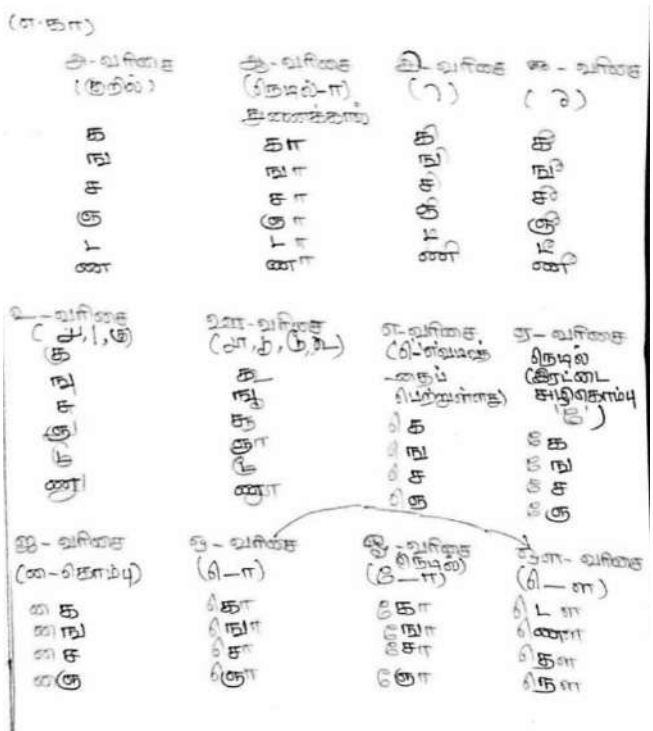 (எ-கா)
அ-வரிசை
(குறில்)
க
ங
ச
ஞ
ட
ண
ஆ-வரிசை
(நெடில்-ா)
துணைக்கால்
கா
ஙா
சா
ஞா
டா
ணா
இ-வரிசை
( ி )
கி
ஙி
சி
ஞி
டி
ணி
ஈ - வரிசை
( ீ )
கீ
ஙீ
சீ
ஞீ
டீ
ணீ
உ-வரிசை
கு
ஙு
சு
ஞு
டு
ணு
ஊ-வரிசை
கூ
ஙூ
சூ
ஞூ
டூ
ணூ
எ-வரிசை
பெற்றுள்ளது)
கெ
ஙெ
செ
ஞெ
ஏ - வரிசை
நெடில்
(இரட்டை
சுழிகொம்பு
'ே')
கே
ஙே
சே
ஞே
ஐ - வரிசை
(ை-கொம்பு)
கை
ஙை
சை
ஞை
ஒ - வரிசை
(ெ-ா)
கொ
ஙொ
சொ
ஞொ
ஓ -வரிசை
நெடில்)
(ே-ா)
கோ
ஙோ
சோ
ஞோ
ஔ- வரிசை
(ெ-ள)
டௌ
ணௌ
தௌ
நௌ